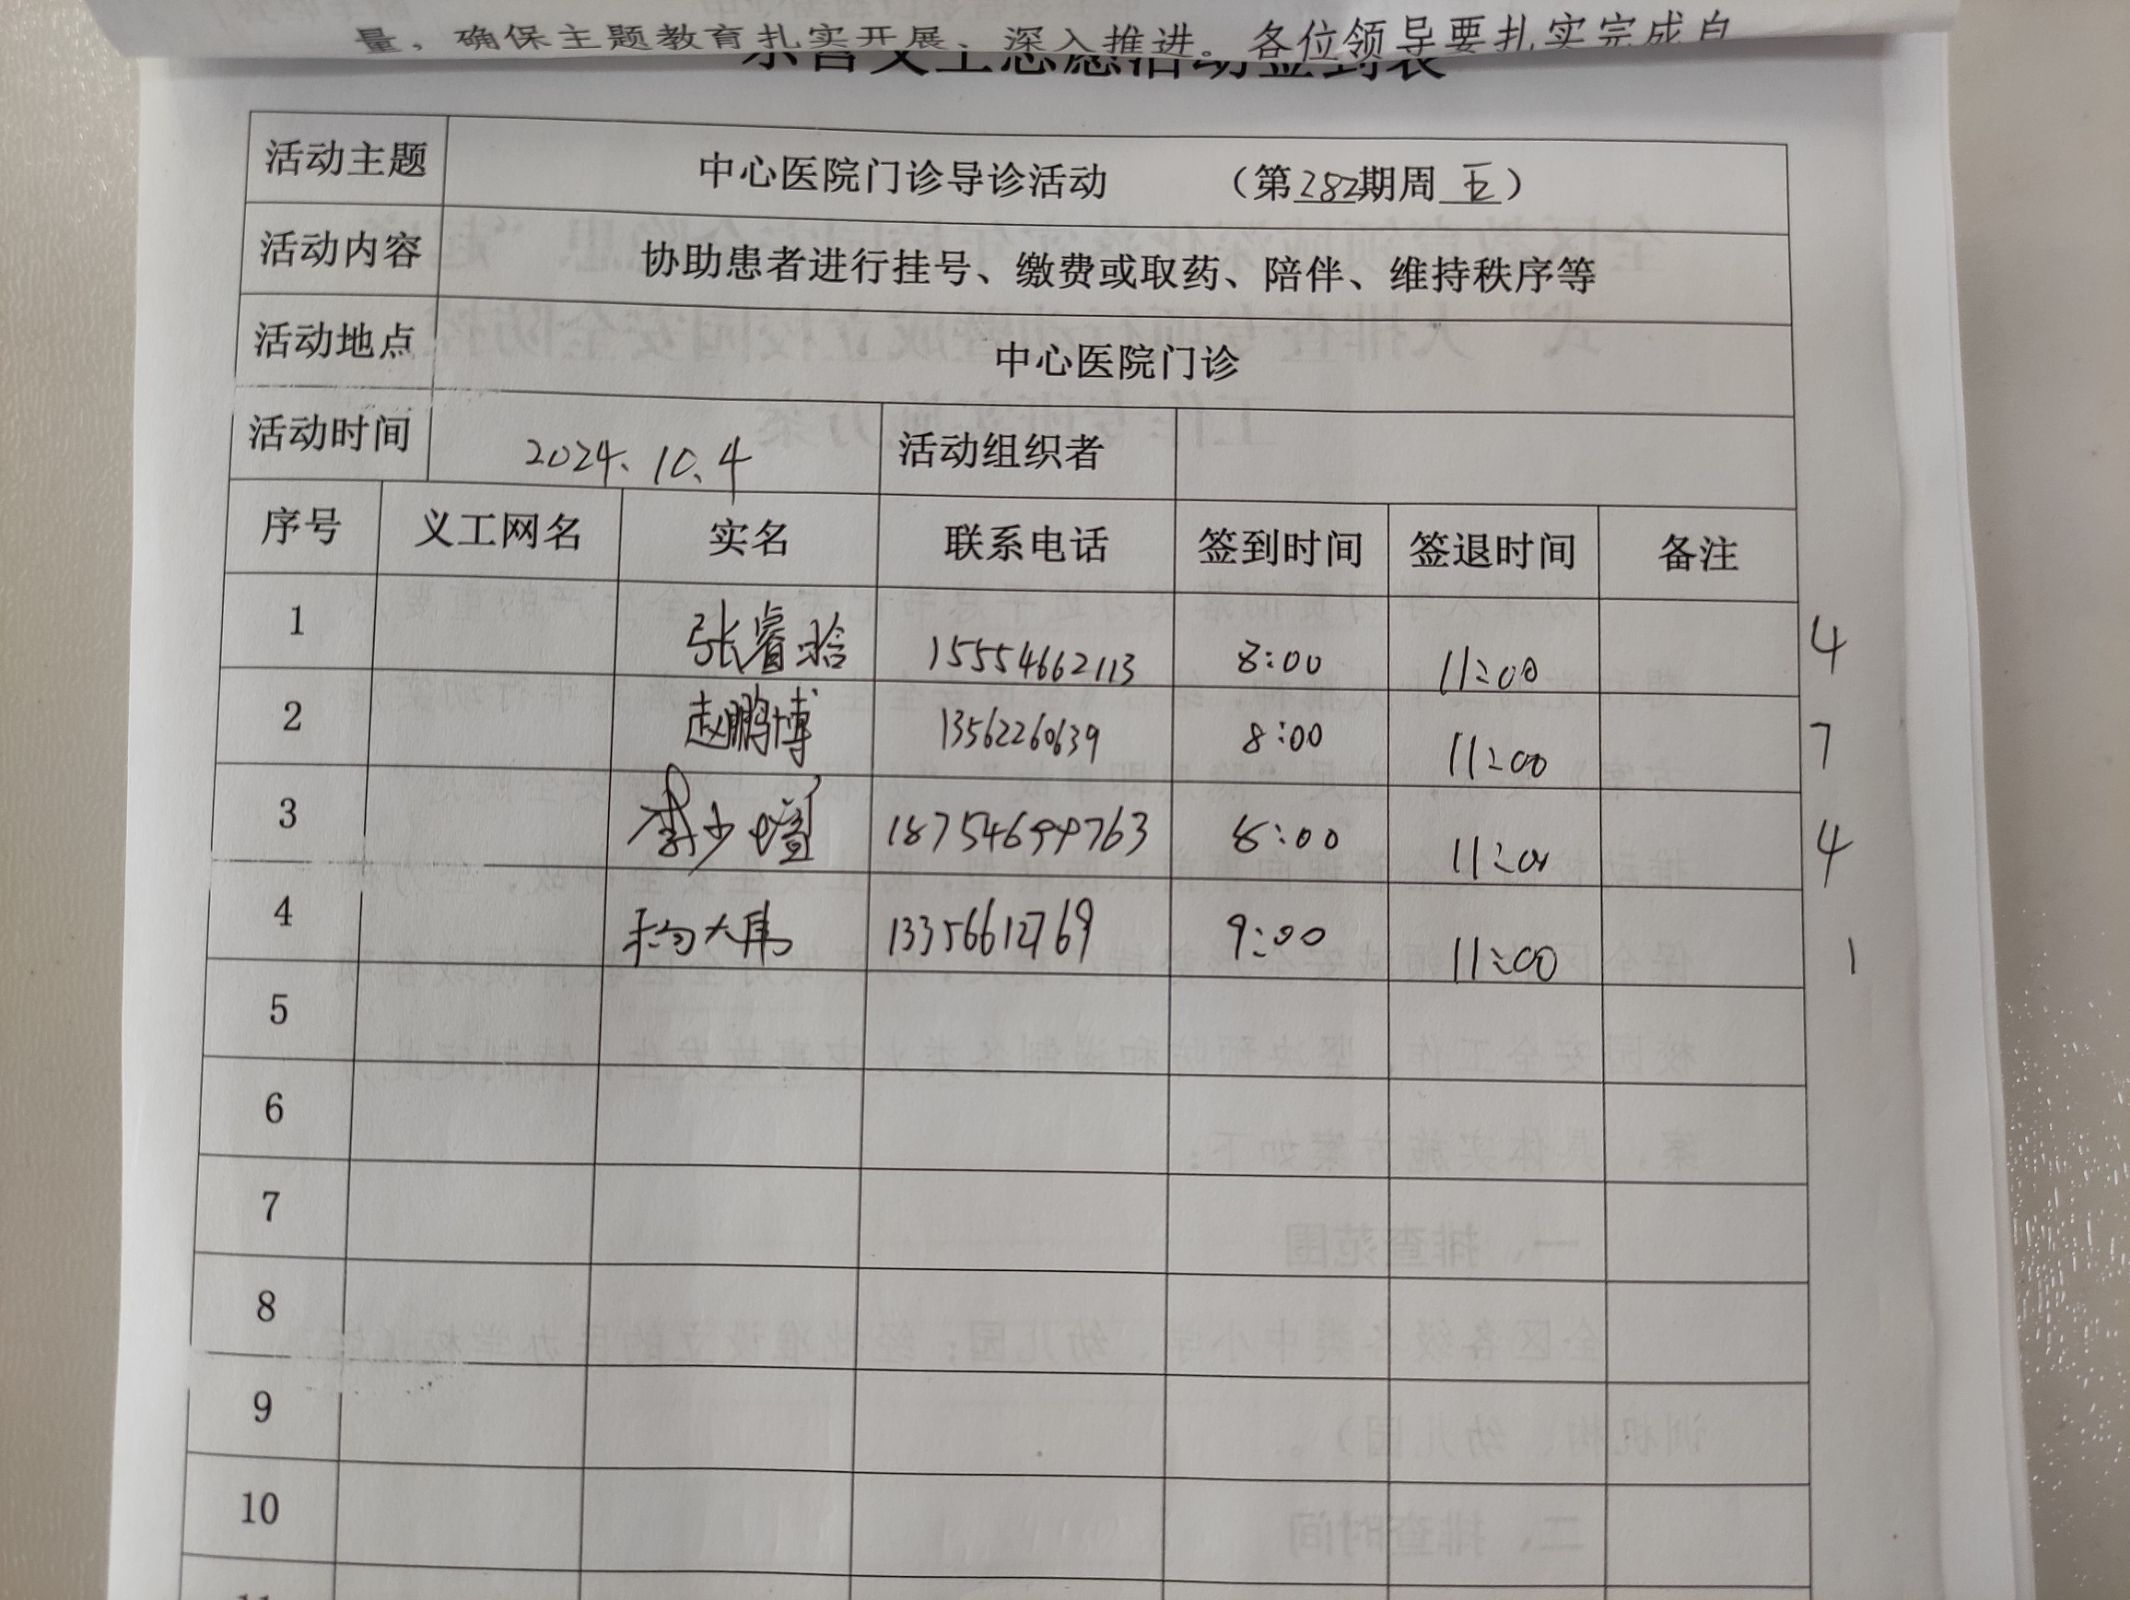 量，确保主题教育扎实开展、深入推进。各位领导要扎实完成自
活动主题 中心医院门诊导诊活动 （第282期周五）
活动内容 协助患者进行挂号、缴费或取药、陪伴、维持秩序等
活动地点 中心医院门诊
活动时间 2024.10.4 活动组织者
序号 义工网名 实名 联系电话 签到时间 签退时间 备注
1 张睿晗 15554662113 8:00 11:00 4
2 赵鹏博 13562260639 8:00 11:00 7
3 18754699763 8:00 11:00 4
4 杨大伟 13356612769 9:00 11:00 1
5
6
7
8
9
10